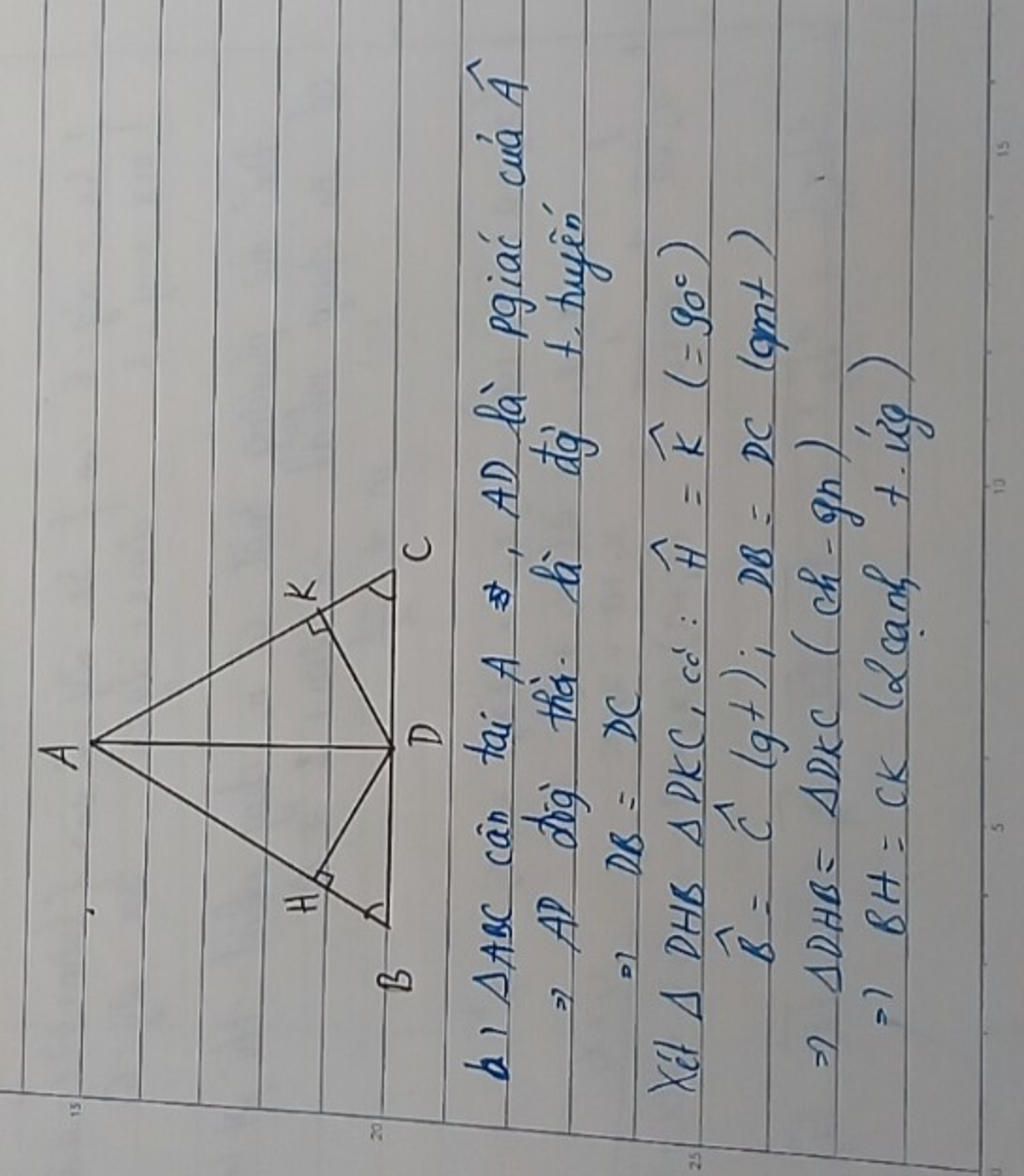 A
H
K
B
D
C
b) ΔABC cân tại A, AD là pgiác của Â
=) AD đồg thờ. là đg̀ t.tuyến
=) DB = DC
Xét Δ DHB Δ DKC, có: Ĥ = K̂ (= 90°)
B̂ = Ĉ (gt); DB = DC (cmt)
=) ΔDHB = ΔDKC (ch - gn)
=) BH = CK (2 cạnh t.ứg)
15
20
25
0
5
10
15